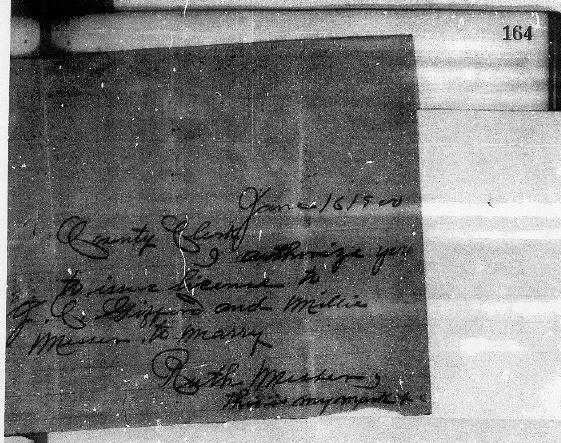 164
June 16 1900
County Clerk
I authorize you
to issue license to
and Millie
to marry
Ruth
this is my mark